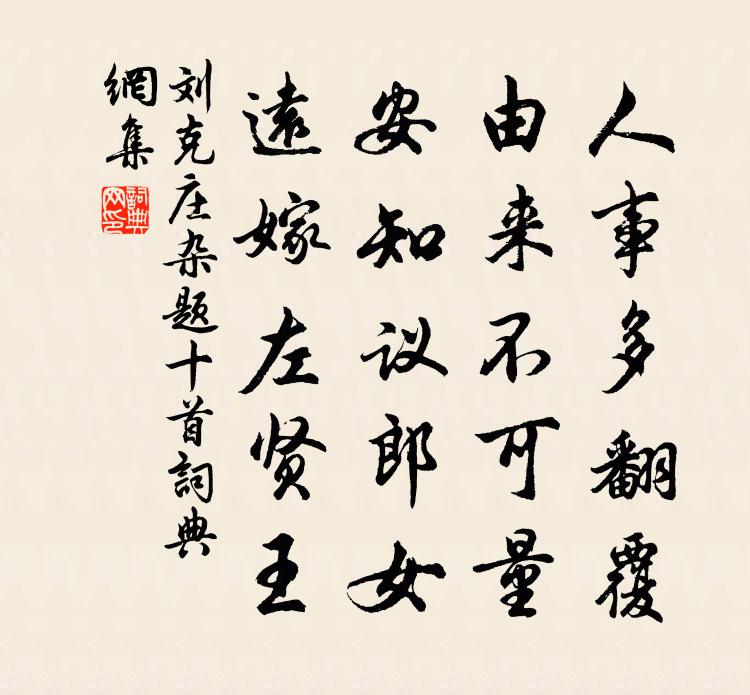 人事多翻覆
由来不可量
安知议郎女
遠嫁左贤王
刘克庄杂题十首詞典
網集
詞典
网印